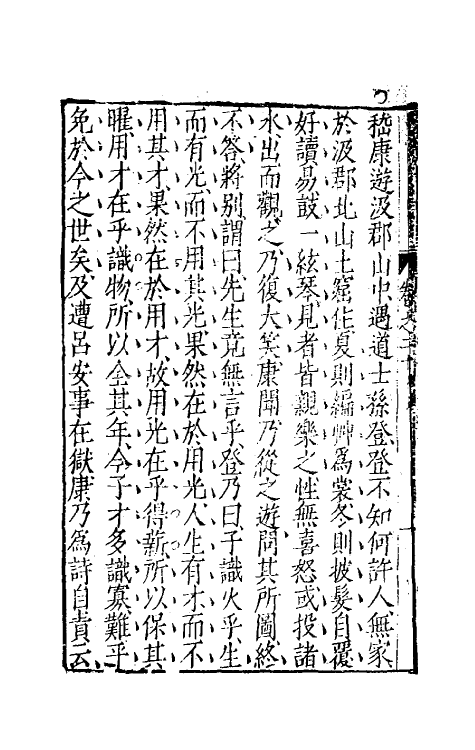 嵇康遊汲郡山中遇道士孫登登不知何許人無家
於汲郡北山土窟住夏則編艸爲裳冬則披髮自覆
好讀易鼓一絃琴見者皆親樂之性無喜怒或投諸
水出而觀之乃復大笑康聞乃從之遊問其所圖終
不答將別謂曰先生竟無言乎登乃曰子識火乎生
而有光而不用其光果然在於用光人生有才而不
用其才果然在於用才故用光在乎得薪所以保其
曜用才在乎識物所以全其年今子才多識寡難乎
免於今之世矣及遭呂安事在獄康乃爲詩自責云